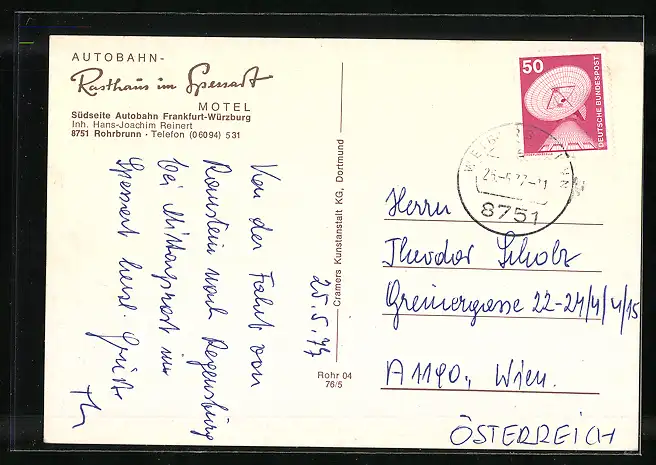 AUTOBAHN-
Rasthaus im Spessart
MOTEL
Südseite Autobahn Frankfurt-Würzburg
Inh. Hans-Joachim Reinert
8751 Rohrbrunn • Telefon (06094) 531
Von der Fahrt von
nach Regensburg
bei Mittagsrast im
Spessart herzl. Grüße
25.5.77
Cramers Kunstanstalt KG, Dortmund
Rohr 04
76/5
50
DEUTSCHE BUNDESPOST
8751
Herrn
Theodor Scholz
Greinergasse 22-24/4/4/15
A 1190, Wien.
ÖSTERREICH